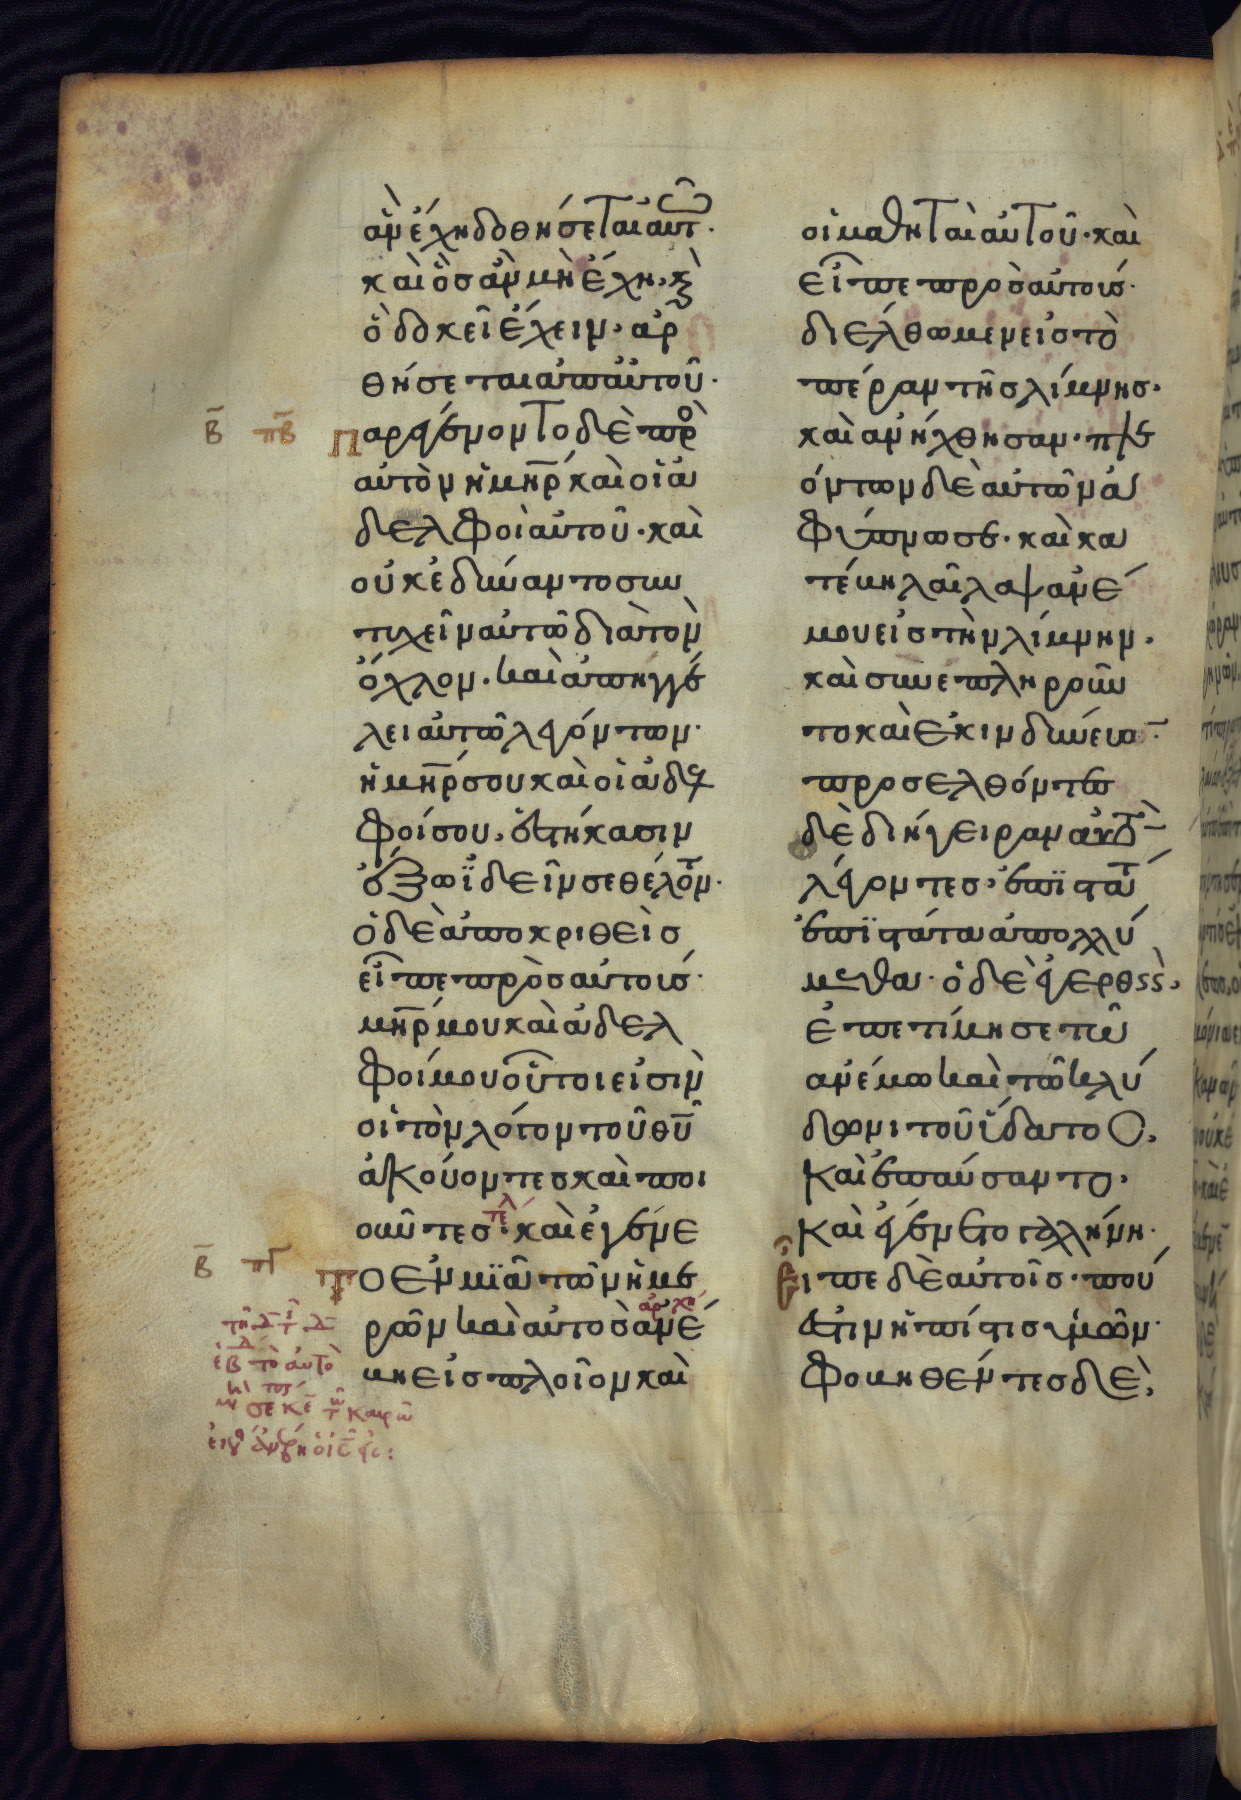 ἂν ἔχη δοθήσεται αυτῶ.
καὶ ὃσ ἂν μὴ ἔχη, κὶ
ὃ δοκεῖ ἔχειν, ἀρ
θήσεται ἀπ αὐτοῦ.
Β ΠΒ Παρεγένοντο δὲ πρὸ
αὐτὸν ἡ μηρ καὶ οἱ ἀ
δελφοὶ αὐτοῦ. καὶ
οὐκ ἐδύναντο συν
τυχεῖν αὐτῶ διὰ τὸν
ὄχλον. καὶ ἀπηγγέ
λει αὐτῶ λεγόντων.
ἡ μηρ σου καὶ οἱ ἀδελ
φοί σου, ἑστήκασιν
ἔξω ἰδεῖν σε θέλοντ.
ὁ δὲ ἀποκριθεὶσ
εἶπε πρὸσ αὐτουσ.
μηρ μου καὶ ἀδελ
φοί μου οὗτοι εἰσὶν
οἱ τὸν λόγον τοῦ θυ
ἀκούοντεσ καὶ ποι
οῦντεσ. τελ καὶ ἐγένε
Β ΠΓ το ἐν μιᾶ τῶν ἡμε
ρῶν καὶ αὐτοσ ἀνέ
βη εἰσ πλοῖον καὶ
οἱ μαθηταὶ αὐτοῦ. καὶ
εἶπε πρὸσ αὐτουσ.
διέλθωμεν εἰσ τὸ
πέραν τῆσ λίμνησ.
καὶ ἀνήχθησαν. πλε
όντων δὲ αὐτῶν ἀ
φύπνωσε. καὶ κα
τέβη λαῖλαψ ἀνέ
μου εἰσ τὴν λίμνην.
καὶ συνεπληροῦν
το καὶ ἐκινδύνευο.
προσελθόντεσ
δὲ διήγειραν αὐτὸ
λέγοντεσ, ἐπιστάτ
ἐπιστάτα ἀπολλύ
μεθα. ὁ δὲ ἐγερθεὶσ,
ἐπετίμησε τῶ
ἀνέμω καὶ τῶ κλύ
δωνι τοῦ ὕδατοσ,
καὶ ἐπαύσαντο.
καὶ ἐγένετο γαλήνη.
Εἶπε δὲ αὐτοῖσ. ποῦ
ἐστιν ἡ πίστισ ὑμῶν.
φοβηθέντεσ δὲ,